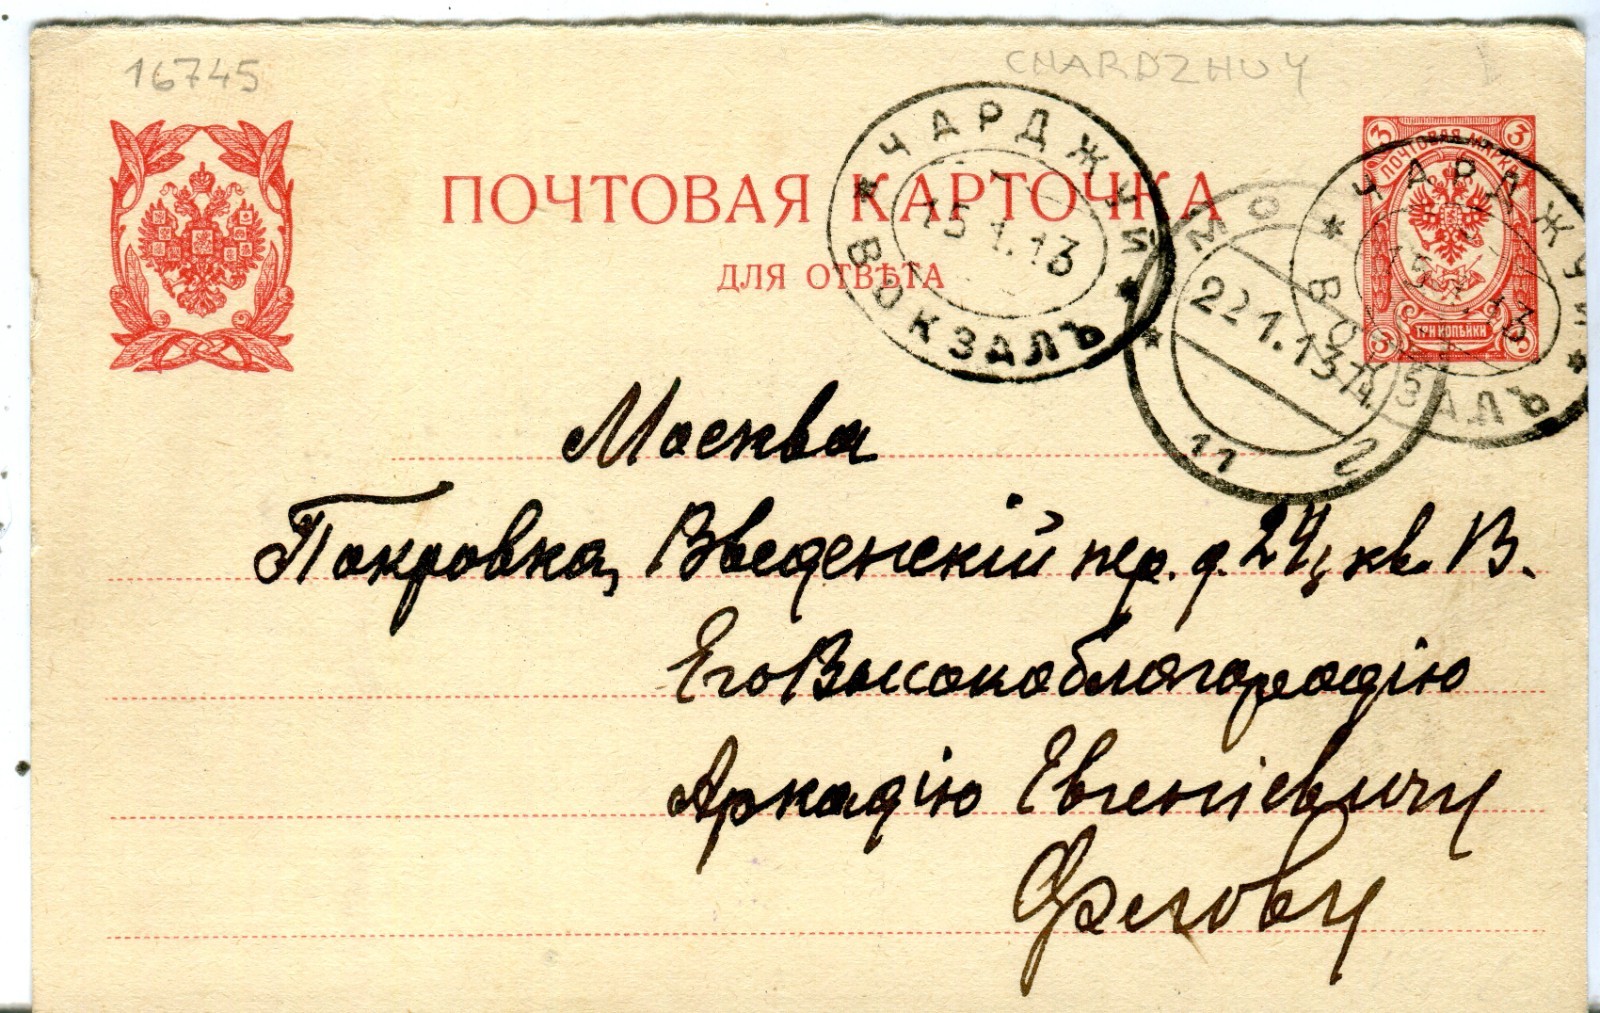 16745
CHARDZHUY
ПОЧТОВАЯ КАРТОЧКА
ДЛЯ ОТВѢТА
ЧАРДЖУЙ
15.1.13
ВОКЗАЛЪ
3 3
ПОЧТОВАЯ МАРКА
ТРИ КОПѢЙКИ
3 3
ЧАРДЖУЙ
15.1.13
ВОКЗАЛЪ
22 1.13
11 2
Москва
Покровка, Введенскій пер. д. 24, кв. 13.
Его Высокоблагородію
Аркадію Евгеніевичу